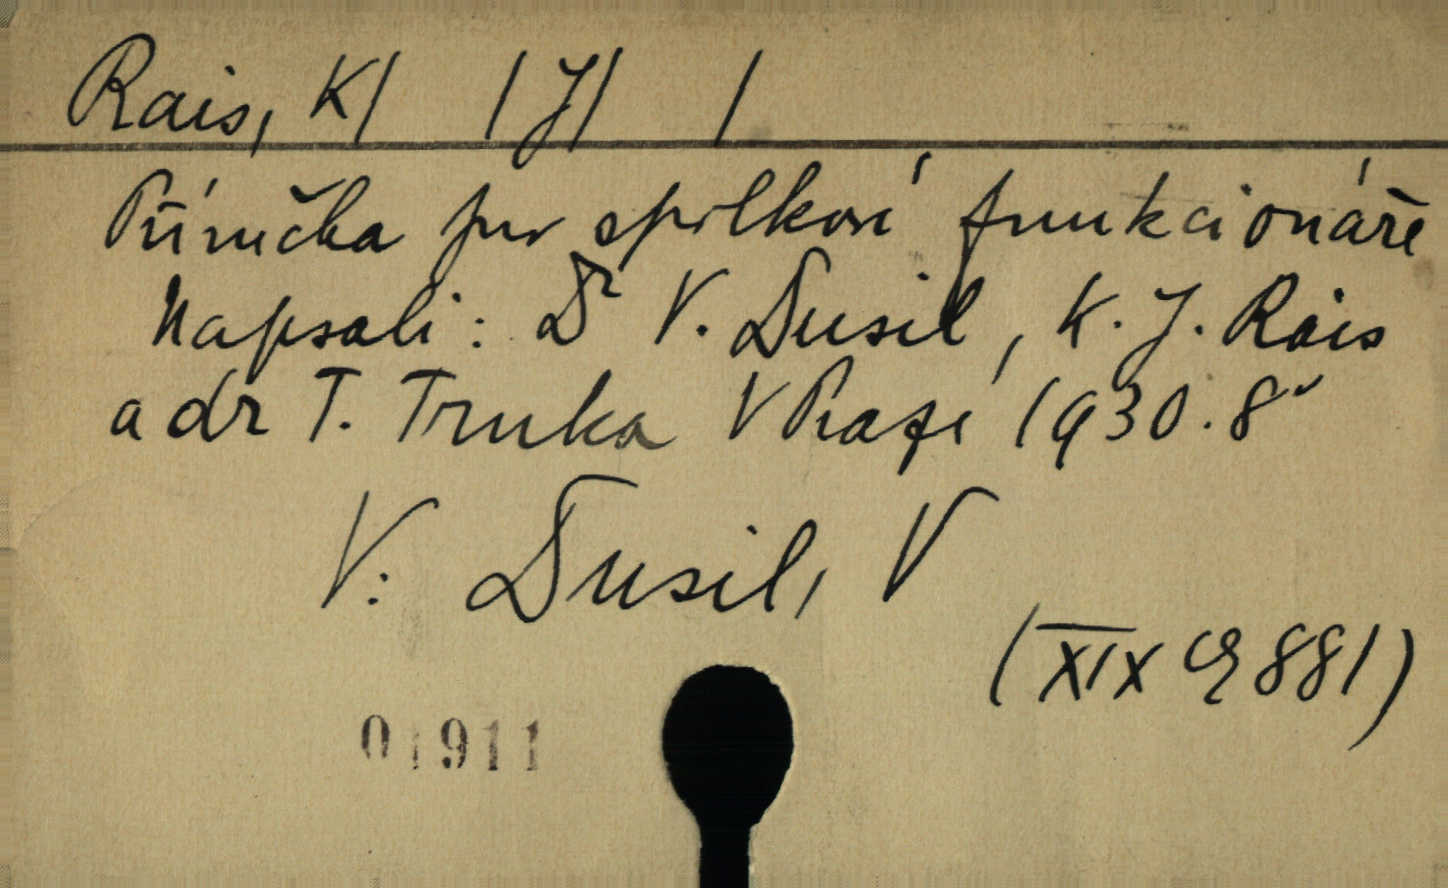 Rais, K/ /J/ /
Příručka pro spolkové funkcionáře
Napsali: Dr V. Dusil, K. J. Rais
a dr T. Trnka V Praze 1930. 8°
V: Dusil, V
(XIX G 881)
01911